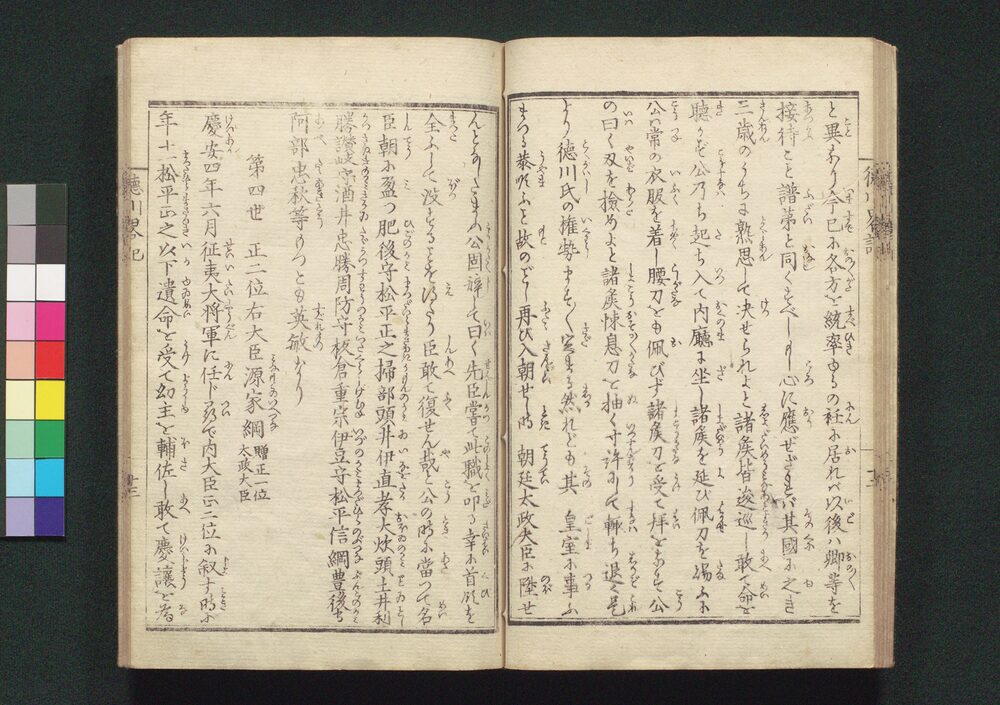 と異なり今已に各方を統率するの秏に居れバ以後ハ卿等を
接待こと譜第と同くすべしもし心に應ぜざれバ其國に之き
三歳のうちに熟思して決せられよと諸侯皆逡巡し敢て命を
聴かず公乃ち起ち入て内廳に坐し諸侯を延び佩刀を賜ふに
公ハ常の衣服を着し腰刀をも佩びず諸侯刀を受て拝をなせバ公
の曰く刄を撿めよと諸侯悚息刀を抽く寸許にして輙ち退く是
より徳川氏の権勢ますますなる然れども其 皇室に事ふ
まつる恭順ふと故のごとし再び入朝せし時 朝廷太政大臣に陞せ
んとのたまふ公固辞して曰く先臣嘗て此職を叨る幸に首領を
全ふして没することを得たり臣敢て復せん哉と公の時に当つて名
臣朝に盈つ肥後守松平正之掃部頭井伊直孝大炊頭土井利
勝讃岐守酒井忠勝周防守板倉重宗伊豆守松平信綱豊後守
阿部忠秋等のごとき英敏なり
第四世 正二位右大臣源家綱 贈正一位太政大臣
慶安四年六月征夷大将軍に任じ内大臣正二位に叙す時に
年十一松平正之以下遺命を受て幼主を輔佐し敢て慶譲を為
徳川畧記